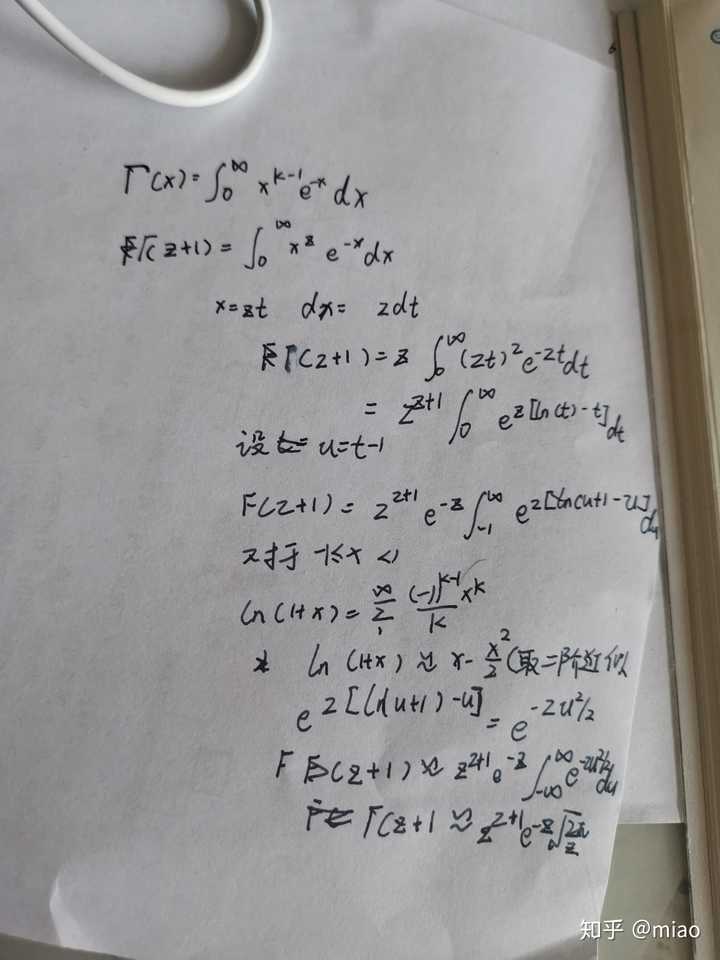 Γ(x)=∫₀^∞ x^{k-1}e^{-x}dx
Γ(z+1)=∫₀^∞ x^z e^{-x}dx
x=zt dx= zdt
Γ(z+1)=z∫₀^∞(zt)^z e^{-zt}dt
=z^{z+1}∫₀^∞ e^{z[ln(t)-t]}dt
设 u=t-1
Γ(z+1)=z^{z+1}e^{-z}∫_{-1}^∞ e^{z[ln(u+1-u]}du
对于 -1≤x<1
ln(1+x)=∑₁^∞ \frac{(-1)^{k-1}x^k}{k}
ln(1+x)≈x-\frac{x^2}{2}(取二阶近似
e^{z[ln(u+1)-u]}=e^{-zu²/2}
Γ(z+1)≈z^{z+1}e^{-z}∫_{-∞}^∞ e^{-zu²/2}du
Γ(z+1≈z^{z+1}e^{-z}\sqrt{\frac{2π}{z}}
知乎 @miao